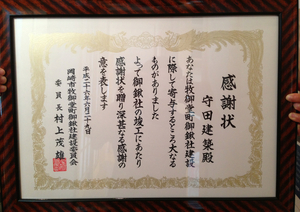 感謝状
守田建築殿
あなたは牧御堂町御鍬社建設
に際して寄与するところ大なる
ものがありました
よって御鍬社の竣工にあたり
感謝状を贈り深甚なる感謝の
意を表します
平成二十六年六月二十九日
岡崎市牧御堂町御鍬社建設委員会
委員長 村上茂雄